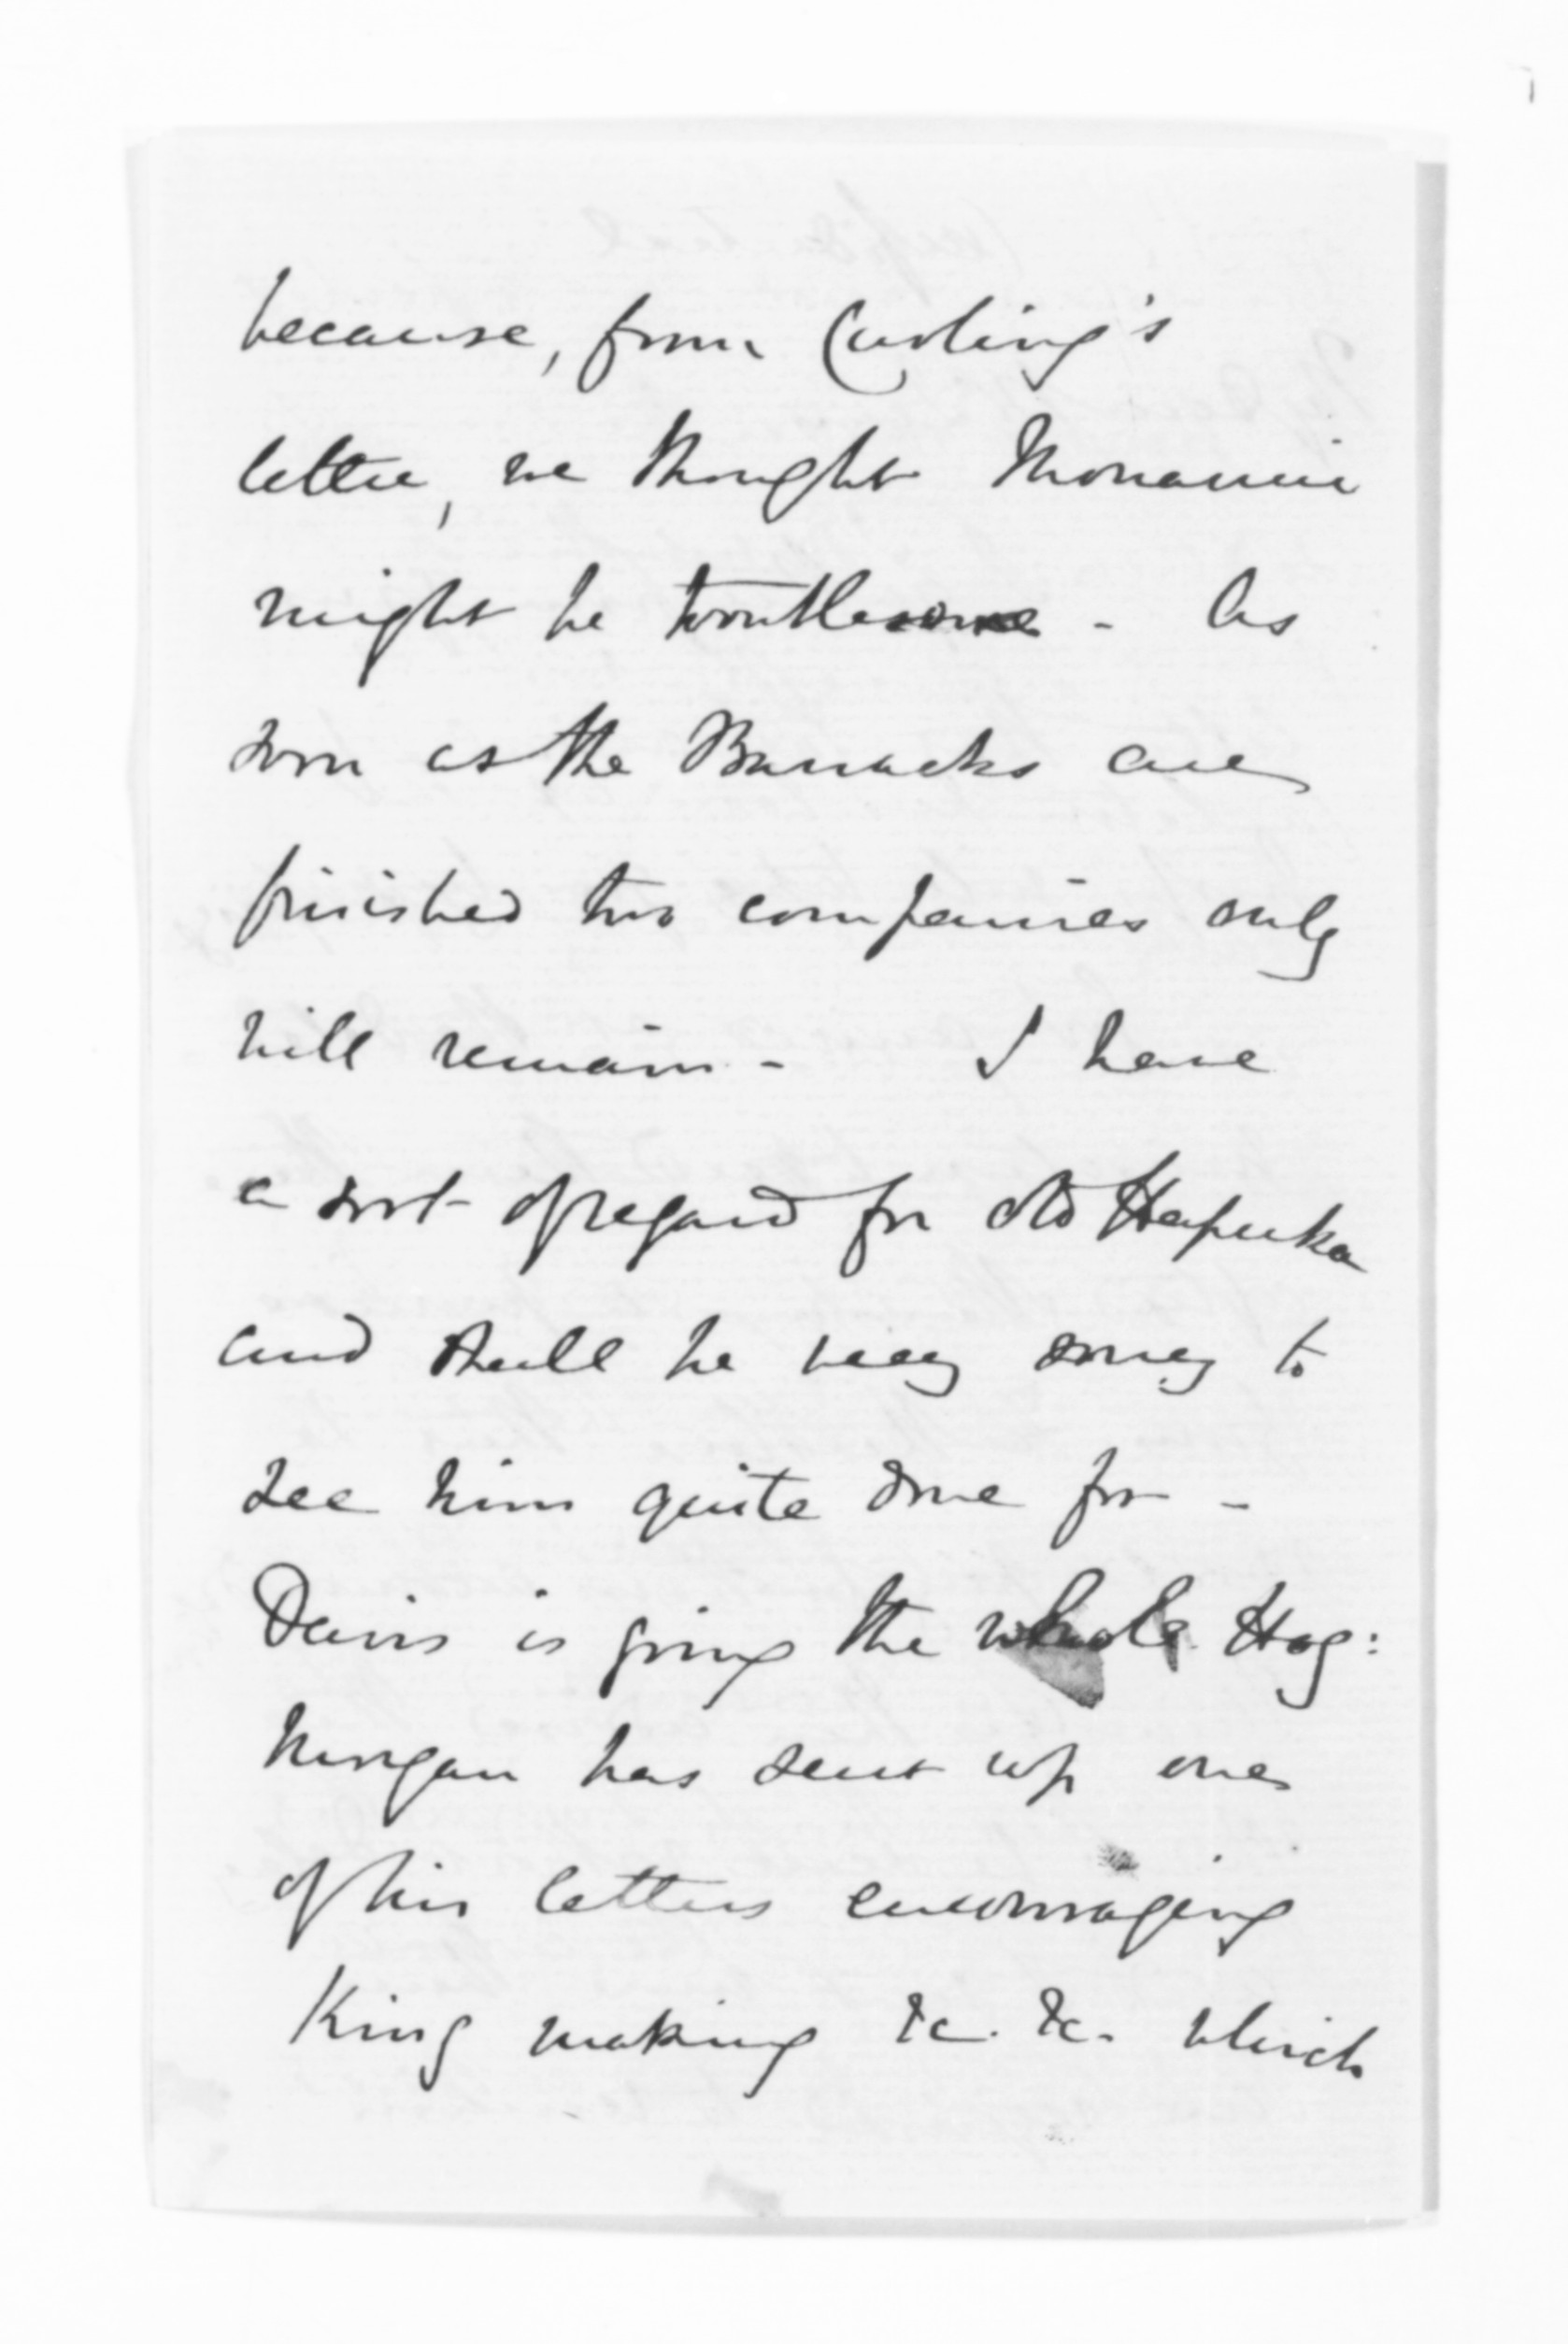 because, from Curling's
letter, we thought Monanui
might be troublesome - As
soon as the Barracks are
finished two companies only
will remain - I have
a sort of regard for old Hapuka
and shall be very sorry to
see him quite done for -
Davis is going the whole Hog:
has sent up one
of his letters encouraging
King making &c. &c. which